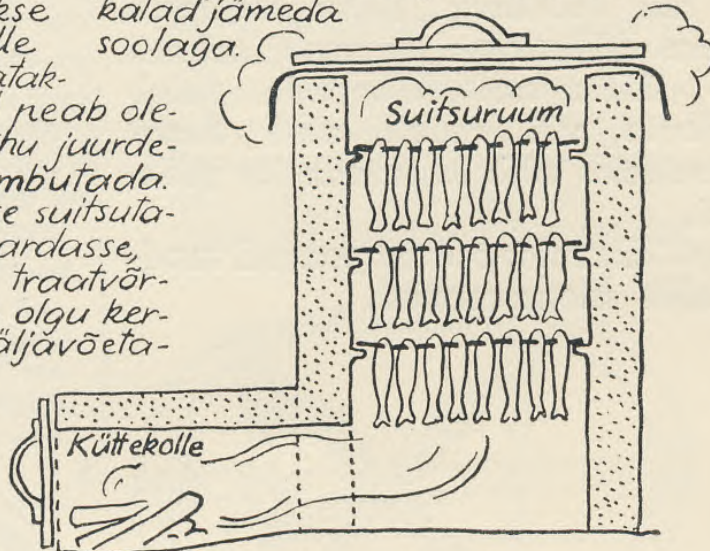 kse kalad jämeda
lle soolaga.
atak-
peab ole-
hu juurde-
mbutada.
e suitsuta-
ardasse,
traatvõr-
olgu ker-
äljavõeta-
Suitsuruum
Küttekolle